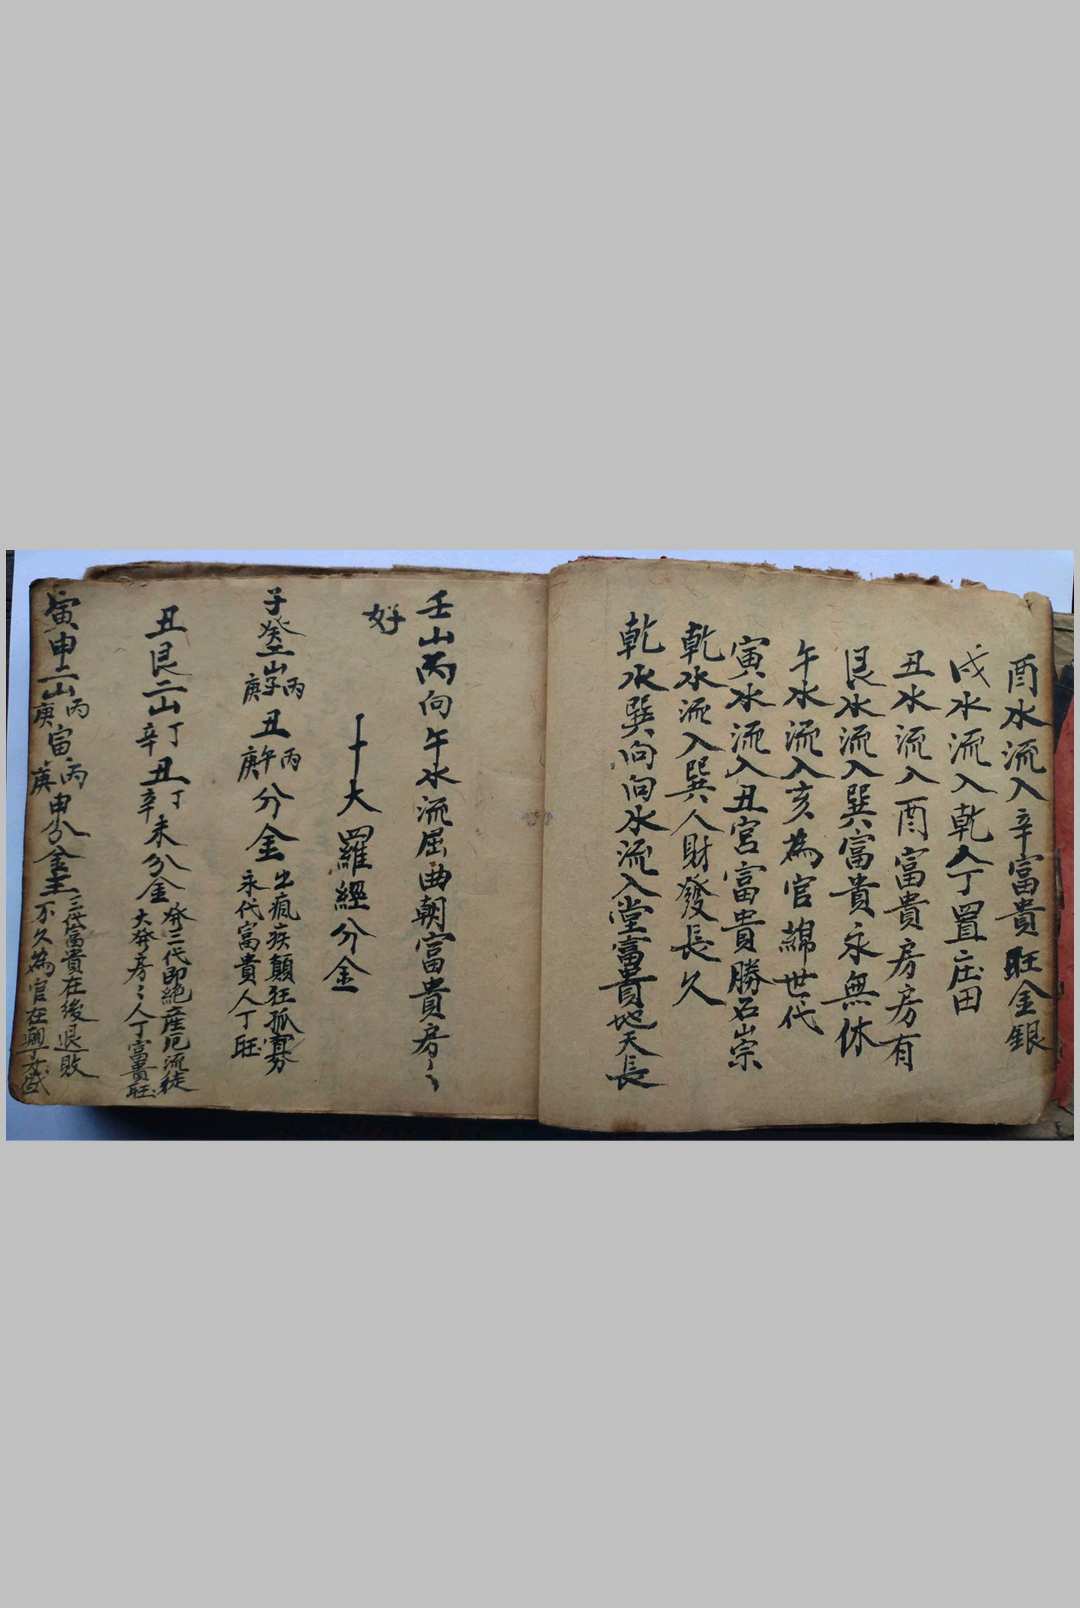 酉水流入辛富貴旺金銀
戌水流入乾人丁置庄田
丑水流入酉富貴房房有
艮水流入巽富貴永無休
午水流入亥為官綿世代
寅水流入丑宮富貴勝石崇
乾水流入巽人財發長久
乾水巽向向水流入堂富貴地天長
壬山丙向午水流屈曲朝富貴房〻
好
十大羅經分金
子癸二山丙庚子丙庚午分金
出瘋疾顛狂孤寡
永代富貴人丁旺
丑艮二山丁辛丑丁辛未分金
發三代即絕産厄流徒
大發房〻人丁富貴旺
寅申二山丙庚寅丙庚申分金主
三代富貴在後退敗
不久為官在